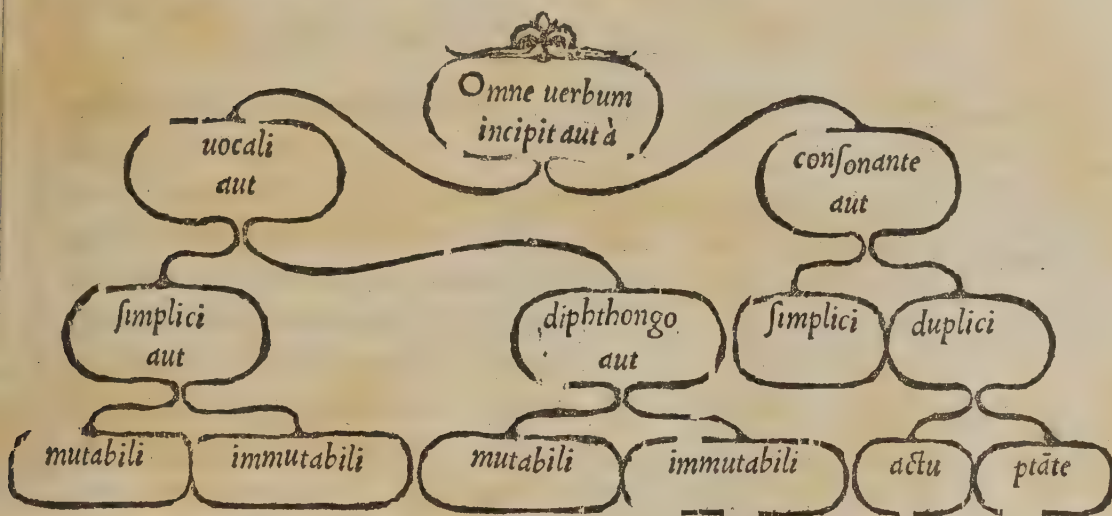 Omne uerbum
incipit aut à
uocali
aut
conſonante
aut
ſimplici
aut
diphthongo
aut
ſimplici
duplici
mutabili
immutabili
mutabili
immutabili
actu
ptāte